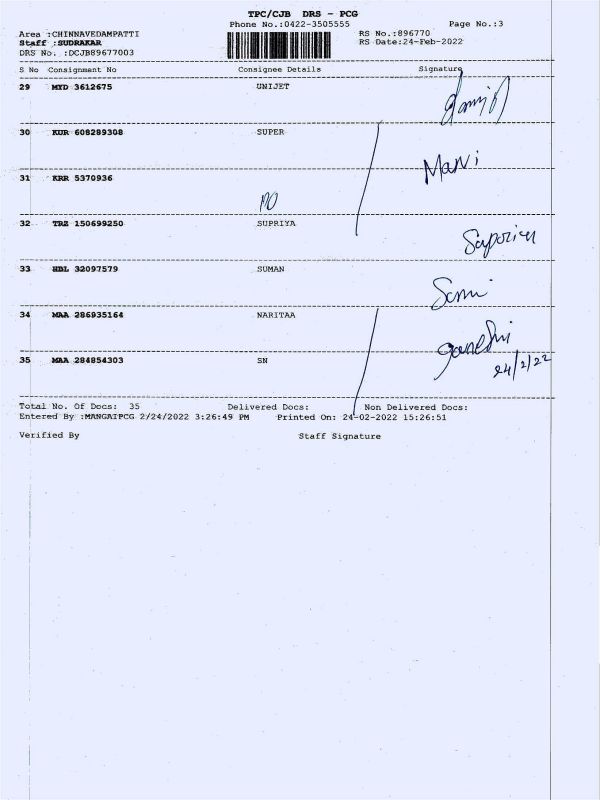 TPC/CJB DRS - PCG
Phone No.:0422-3505555 Page No.:3
Area :CHINNAVEDAMPATTI RS No.:896770
Staff :SUDRAKAR RS Date:24-Feb-2022
DRS No. :DCJB89677003
S No Consignment No Consignee Details Signature
29 MYD 3612675 UNIJET
30 KUR 608289308 SUPER
Mani
31 KRR 5370936
PO
32 TRZ 150699250 SUPRIYA
33 HBL 32097579 SUMAN
34 MAA 286935164 NARITAA
35 MAA 284854303 SN
24/2/22
Total No. Of Docs: 35 Delivered Docs: Non Delivered Docs:
Entered By :MANGAIPCG 2/24/2022 3:26:49 PM Printed On: 24-02-2022 15:26:51
Verified By Staff Signature